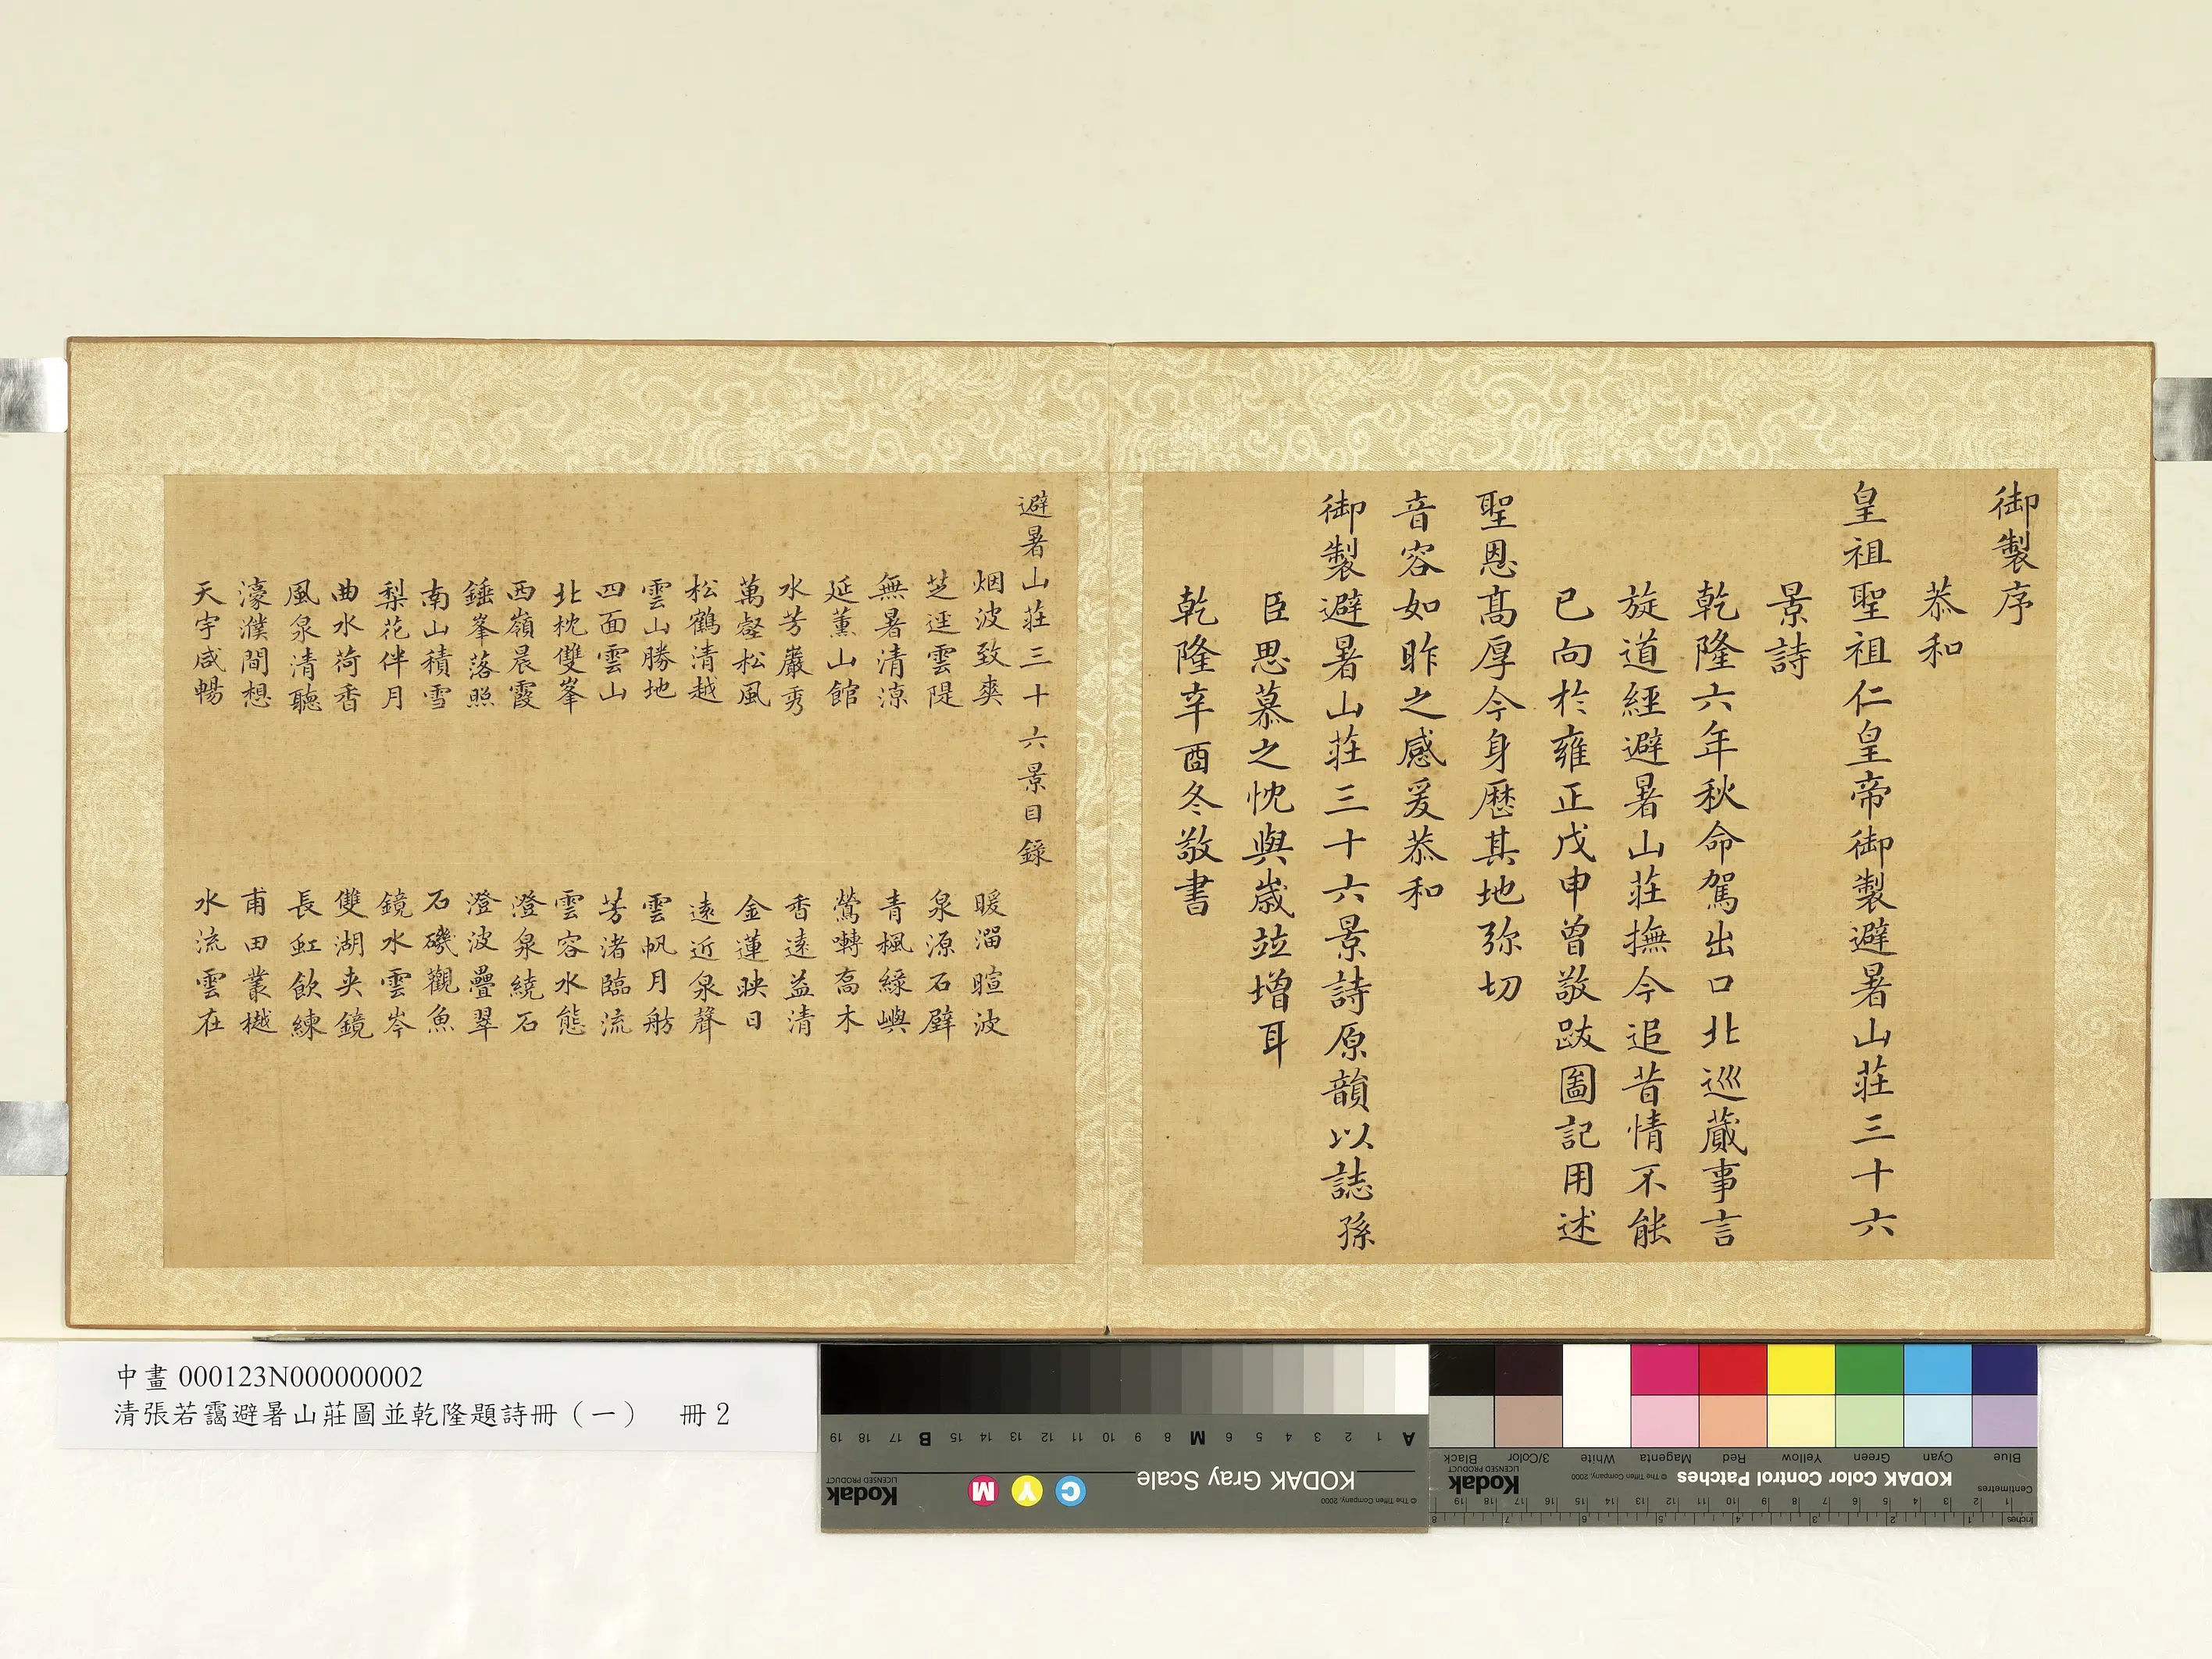 御製序
恭和
皇祖聖祖仁皇帝御製避暑山莊三十六
景詩
乾隆六年秋命駕出口北巡蕆事言
旋道經避暑山莊撫今追昔情不能
已向於雍正戊申曾敬跋圖記用述
聖恩髙厚今身歷其地弥切
音容如昨之感爰恭和
御製避暑山莊三十六景詩原韻以誌孫
臣思慕之忱與歲竝增耳
乾隆辛酉冬敬書
避暑山莊三十六景目錄
烟波致爽 暖溜暄波
芝逕雲隄 泉源石壁
無暑清涼 青楓綠嶼
延薰山館 鶯囀喬木
水芳巖秀 香遠益清
萬壑松風 金蓮映日
松鶴清越 遠近泉聲
雲山勝地 雲帆月舫
四面雲山 芳渚臨流
北枕雙峯 雲容水態
西嶺晨霞 澄泉繞石
錘峯落照 澄波疊翠
南山積雪 石磯觀魚
梨花伴月 鏡水雲岑
曲水荷香 雙湖夾鏡
風泉清聽 長虹飲練
濠濮間想 甫田叢樾
天宇咸暢 水流雲在
中畫 000123N000000002
清張若靄避暑山莊圖並乾隆題詩冊（一） 冊 2
A 1 2 3 4 5 6 M 8 9 10 11 12 13 14 15 B 17 18 19
KODAK Gray Scale
C Y M
Kodak
LICENSED PRODUCT
© The Tiffen Company, 2000
Blue Cyan Green Yellow Red Magenta White 3/Color Black
KODAK Color Control Patches
© The Tiffen Company, 2000
Kodak
LICENSED PRODUCT
Centimetres
1 2 3 4 5 6 7 8 9 10 11 12 13 14 15 16 17 18 19
Inches
1 2 3 4 5 6 7 8